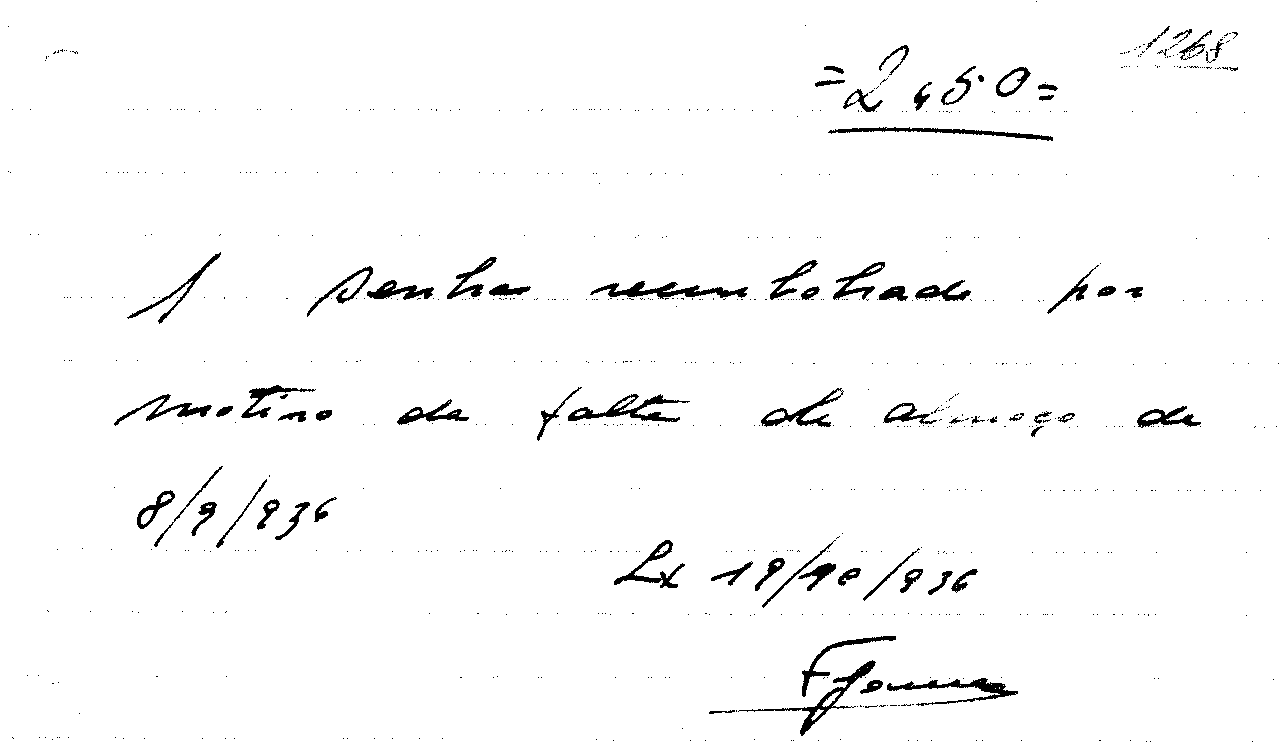 1268
=2,50=
1 senha reembolsada por
motivo da falta de almoço de
8/9/936
Lx 19/10/936
FGomes